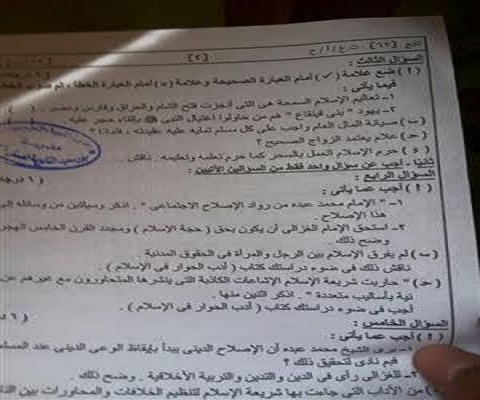 تابع [٦٢] ث.ع/أ/ح [٢]
السؤال الثالث :
( أ ) ضع علامة ( ✓ ) أمام العبارة الصحيحة وعلامة (×) أمام العبارة الخطأ ، ثم صوب الخطأ
فيما يأتى :
١- تعاليم الإسلام السمحة هى التى أنجزت فتح الشام والعراق وفارس ومصر . ( )
٢- يهود " بنى قينقاع " هم من حاولوا اغتيال النبى ﷺ بإلقاء حجر عليه .
(ب) صيانة المال العام واجب على كل مسلم تمليه عليه عقيدته ، فلماذا ؟
(جـ) علام يعتمد الزواج الصحيح ؟
( د ) حرم الإسلام العمل بالسحر كما حرم تعلمه وتعليمه . ناقش .
ثانيًا : أجب عن سؤال واحد فقط من السؤالين الآتيين :
السؤال الرابع :
( أ ) أجب عما يأتى :
١- " الإمام محمد عبده من رواد الإصلاح الاجتماعى " . اذكر وسيلتين من وسائله
هذا الإصلاح .
٢- استحق الإمام الغزالى أن يكون بحق ( حجة الإسلام ) ومجدد القرن الخامس
وضح ذلك .
(ب) لم يفرق الإسلام بين الرجل والمرأة فى الحقوق المدنية .
ناقش ذلك فى ضوء دراستك كتاب ( أدب الحوار فى الإسلام ) .
(جـ) " حاربت شريعة الإسلام الإشاعات الكاذبة التى ينشرها المتحاورون مع غيرهم عن
نية بأساليب متعددة " . اذكر اثنين منها .
أجب فى ضوء دراستك كتاب ( أدب الحوار فى الإسلام ) .
السؤال الخامس :
( أ ) أجب عما يأتى :
يرى الشيخ محمد عبده أن الإصلاح الدينى يبدأ بإيقاظ الوعى الدينى عند
فبم نادى لتحقيق ذلك ؟
٢- للغزالى رأى فى الدين والتدين والتربية الأخلاقية . وضح ذلك .
من الآداب التى جاءت بها شريعة الإسلام لتنظيم الخلافات والمحاورات بين